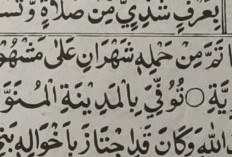 بِعَرْفٍ شَذِيٍّ مِنْ صَلَاةٍ وَتَسْ
تَمَّ مِنْ حَمْلِهِ شَهْرَانِ عَلَى مَشْهُو
يَّةِ ○ تُوُفِّيَ بِالْمَدِينَةِ الْمُنَوَّ
اللهِ وَكَانَ قَدِ اجْتَازَ بِأَخْوَالِهِ بَنِي